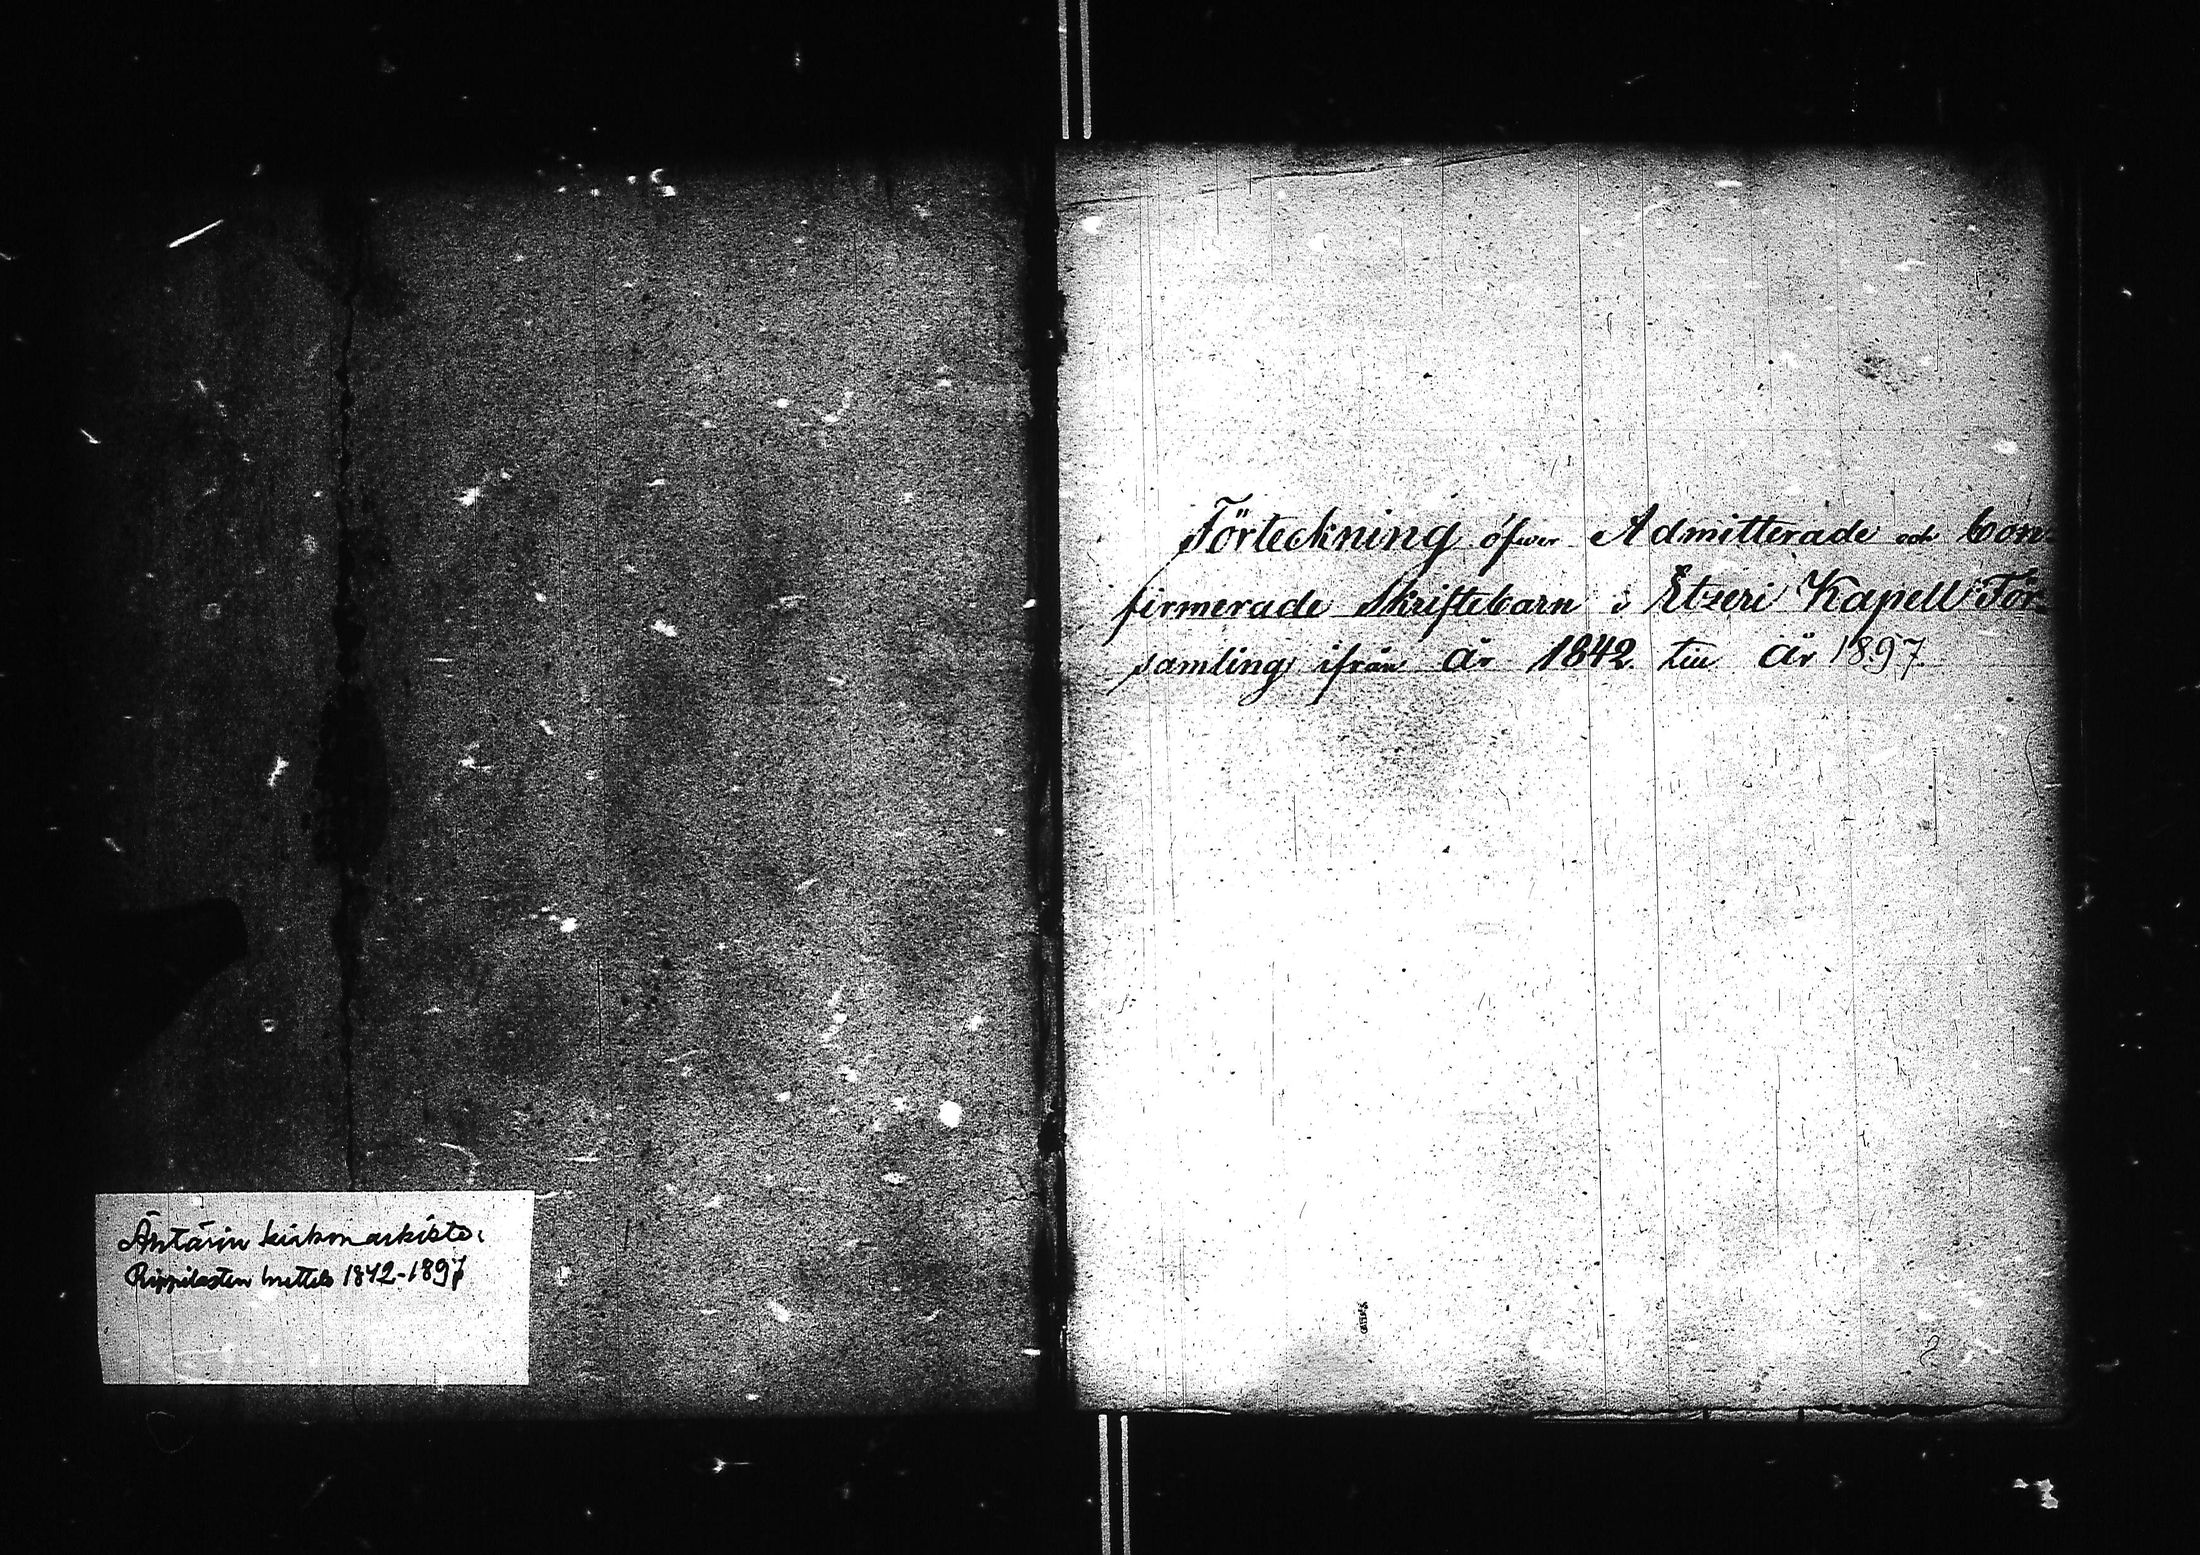 Förteckning öfwer Admitterade och Con-
firmerade Skriftebarn i Etzeri Kapell För-
samling ifrån År 1842 till År 1897.
Ähtärin kirkonarkisto.
Rippilasten luettelo 1842-1897